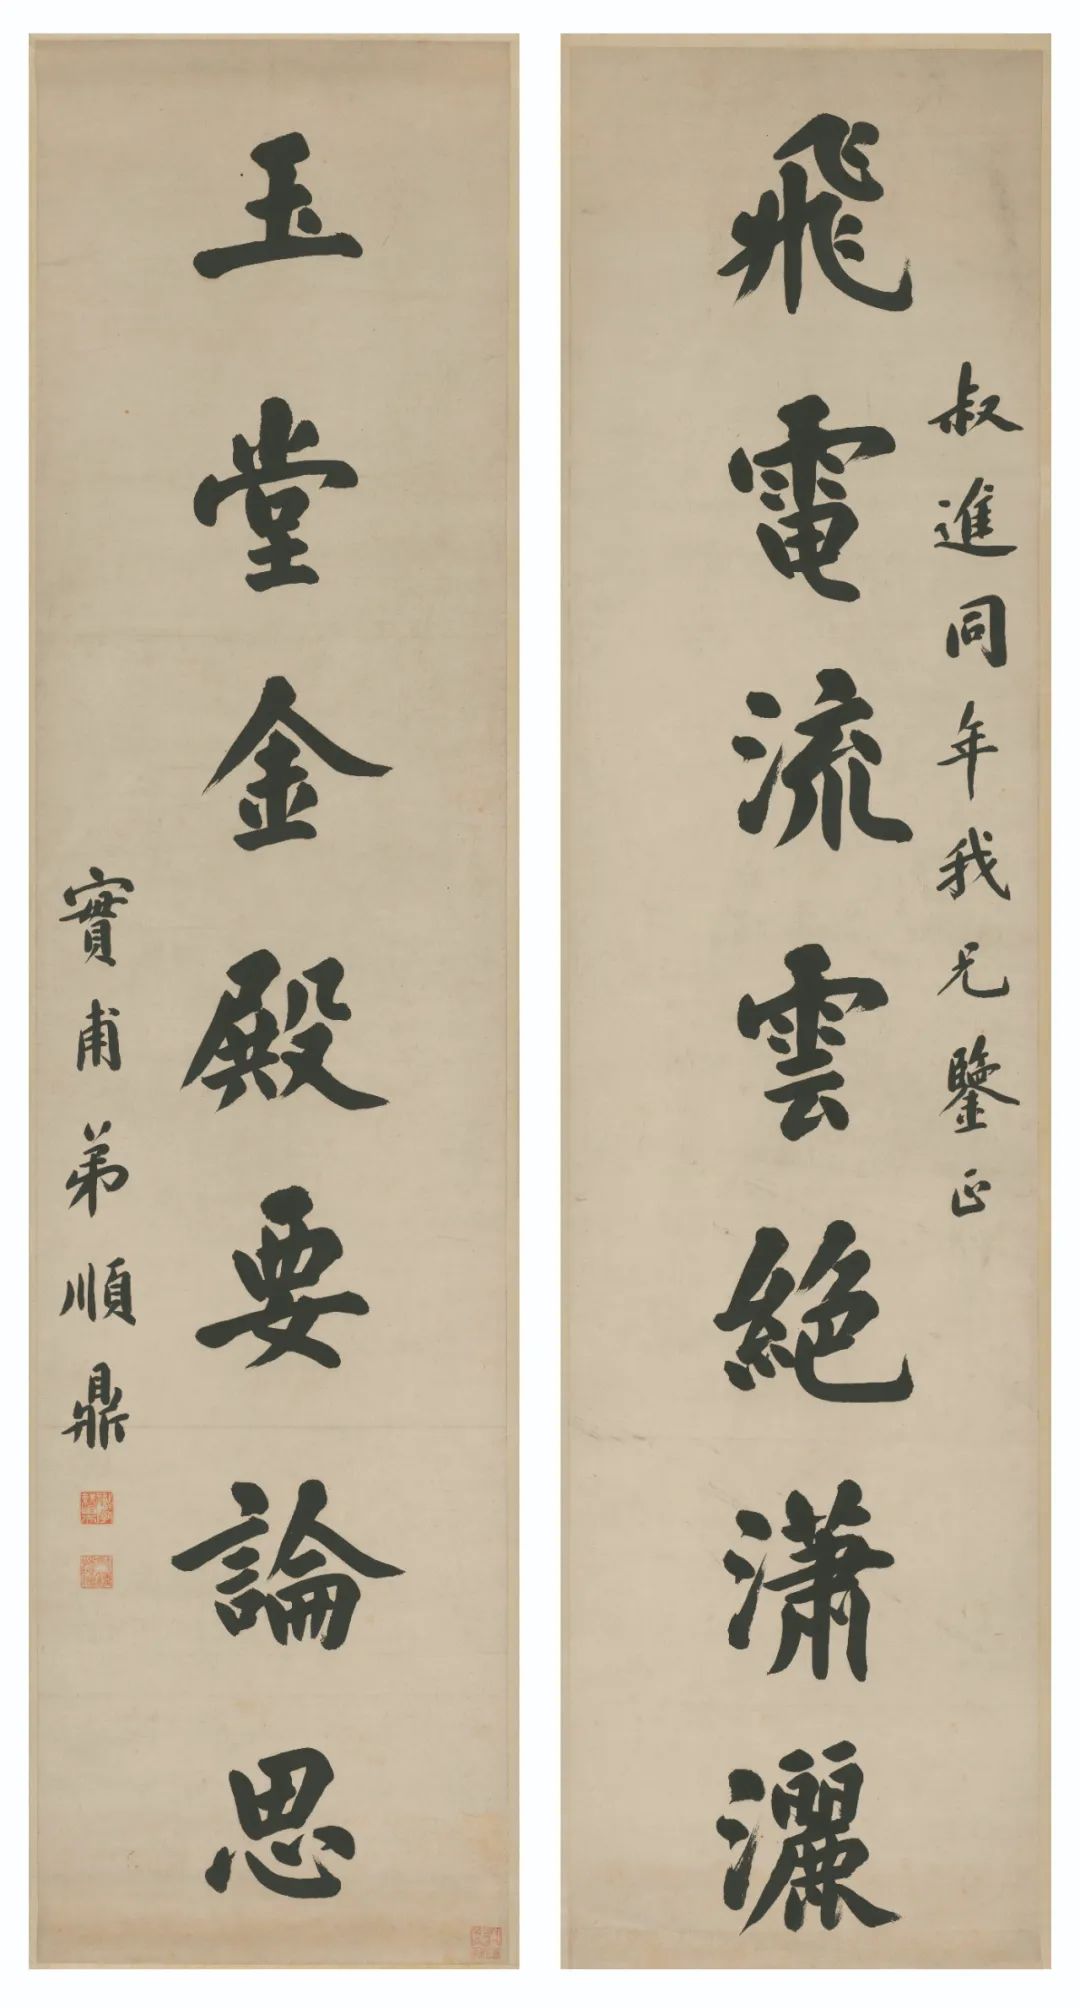 叔進同年我兄鑒正
飛電流雲絕瀟灑
玉堂金殿要論思
實甫弟順鼎